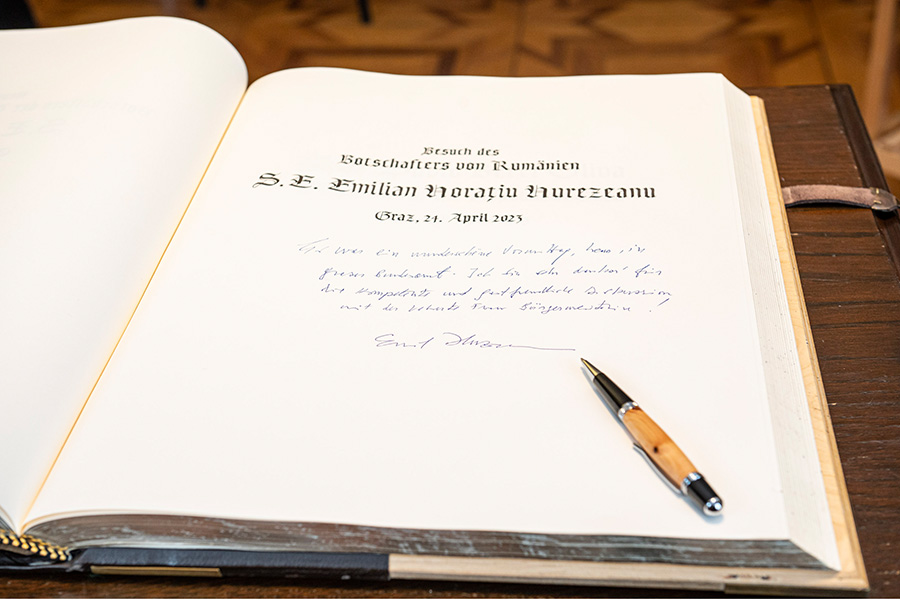 Besuch des
Botschafters von Rumänien
S. E. Emilian Horaţiu Hurezeanu
Graz, 24. April 2023
Es war ein wunderschöne Vormittag, hier, in
Grazer . Ich bin sehr dankbar für
die kompetente und gastfreundliche Diskussion
mit der Frau Bürgermeisterin!
Emil Hurezeanu